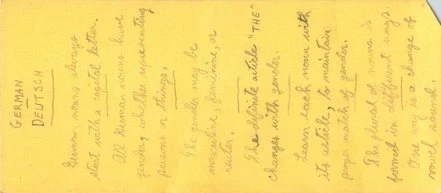 GERMAN
DEUTSCH
German nouns always
start with a capital letter.
All German nouns have
gender, whether representing
persons or things,
The gender may be
masculine, feminine, or
neuter.
The definite article "THE"
changes with gender.
Learn each noun with
its article, to maintain
proper match of gender.
The plural of nouns is
formed in different ways.
One way is a change of
vowel sound.